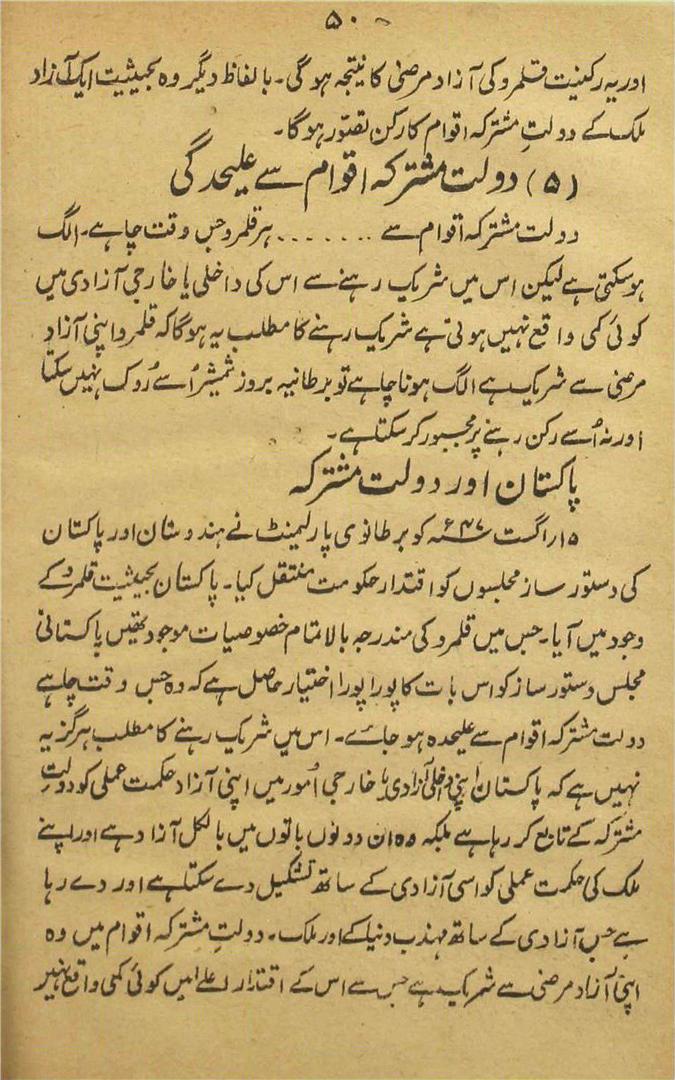 ۵۰
اور یہ رکنیت قلمرو کی آزاد مرضی کا نتیجہ ہوگی۔ بالفاظ دیگر وہ بحیثیت ایک آزاد
ملک کے دولتِ مشترکہ اقوام کا رکن تصوّر ہوگا۔
(۵) دولت مشترکہ اقوام سے علیحدگی
دولت مشترکہ اقوام سے ....... ہر قلمرو جس وقت چاہے۔ الگ
ہوسکتی ہے لیکن اس میں شریک رہنے سے اس کی داخلی یا خارجی آزادی میں
کوئی کمی واقع نہیں ہوتی ہے شریک رہنے کا مطلب یہ ہوگا کہ قلمرو اپنی آزاد
مرضی سے شریک ہے الگ ہونا چاہے تو برطانیہ بروز شمشیر اُسے رُوک نہیں سکتا
اور نہ اُسے رکن رہنے پر مجبور کرسکتا ہے۔
پاکستان اور دولت مشترکہ
۱۵؍اگست ۴۷ء کو برطانوی پارلیمنٹ نے ہندوستان اور پاکستان
کی دستور ساز مجلسوں کو اقتدار حکومت منتقل کیا۔ پاکستان بحیثیت قلمرو کے
وجود میں آیا۔ جس میں قلمرو کی مندرجہ بالا تمام خصوصیات موجود تھیں پاکستانی
مجلس دستور ساز کو اس بات کا پورا پورا اختیار حاصل ہے کہ وہ جس وقت چاہے
دولت مشترکہ اقوام سے علیحدہ ہو جائے۔ اس میں شریک رہنے کا مطلب ہرگز یہ
نہیں ہے کہ پاکستان اپنی داخلی آزادی یا خارجی اُمور میں اپنی آزاد حکمت عملی کو دولتِ
مشترکہ کے تابع کر رہا ہے بلکہ وہ ان دونوں باتوں میں بالکل آزاد ہے اور اپنے
ملک کی حکمت عملی کو اسی آزادی کے ساتھ تشکیل دے سکتا ہے اور دے رہا
ہے جس آزادی کے ساتھ مہذب دنیا کے اور ملک۔ دولتِ مشترکہ اقوام میں وہ
اپنی آزاد مرضی سے شریک ہے جس سے اس کے اقتدار اعلےٰ میں کوئی کمی واقع نہیں